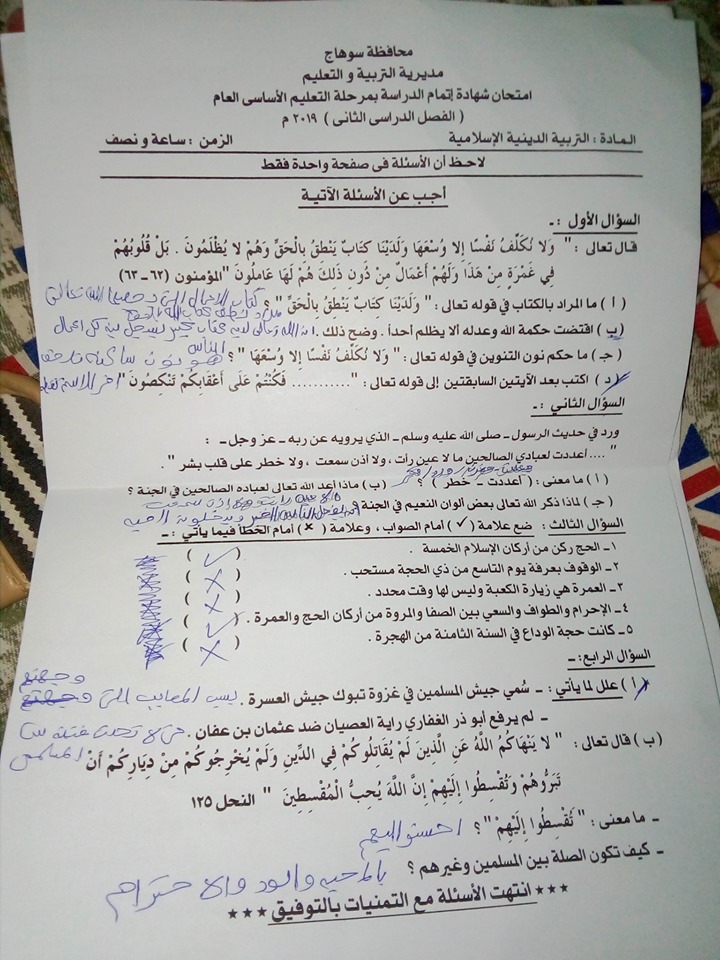 محافظة سوهاج
مديرية التربية و التعليم
امتحان شهادة إتمام الدراسة بمرحلة التعليم الأساسى العام
( الفصل الدراسى الثانى ) ٢٠١٩ م
المادة : التربية الدينية الإسلامية الزمن : ساعة و نصف
لاحظ أن الأسئلة فى صفحة واحدة فقط
أجب عن الأسئلة الآتية
السؤال الأول : ـ
قال تعالى : " وَلَا نُكَلِّفُ نَفْسًا إِلا وُسْعَهَا وَلَدَيْنَا كِتَابٌ يَنْطِقُ بِالْحَقِّ وَهُمْ لا يُظْلَمُونَ . بَلْ قُلُوبُهُمْ
فِي غَمْرَةٍ مِنْ هَذَا وَلَهُمْ أَعْمَالٌ مِنْ دُونِ ذَلِكَ هُمْ لَهَا عَامِلُونَ " المؤمنون (٦٢ – ٦٣)
( أ ) ما المراد بالكتاب في قوله تعالى : " وَلَدَيْنَا كِتَابٌ يَنْطِقُ بِالْحَقِّ " ؟ كتاب الاعمال التى الله تعالى
(ب) اقتضت حكمة الله وعدله ألا يظلم أحداً . وضح ذلك . ان الله تعالى لديه كتاب كل اعمال
الناس
(جـ) ما حكم نون التنوين في قوله تعالى : " وَلا نُكَلِّفُ نَفْسًا إِلا وُسْعَهَا " ؟ نون ساكنة
( د ) اكتب بعد الآيتين السابقتين إلى قوله تعالى : " ........... فَكُنْتُمْ عَلَى أَعْقَابِكُمْ تَنْكِصُونَ "
السؤال الثاني : ـ
ورد في حديث الرسول ـ صلى الله عليه وسلم ـ الذي يرويه عن ربه ـ عز وجل ـ :
" .... أعددت لعبادي الصالحين ما لا عين رأت ، ولا أذن سمعت ، ولا خطر على قلب بشر " .
( أ ) ما معنى : أعددت ـ خطر ؟ (ب) ماذا أعد الله تعالى لعباده الصالحين في الجنة ؟
(جـ) لماذا ذكر الله تعالى بعض ألوان النعيم في الجنة ؟
السؤال الثالث : ضع علامة (✓) أمام الصواب ، وعلامة (×) أمام الخطأ فيما يأتي : ـ
١ ـ الحج ركن من أركان الإسلام الخمسة . ( ✓ )
٢ ـ الوقوف بعرفة يوم التاسع من ذي الحجة مستحب . ( × )
٣ ـ العمرة هي زيارة الكعبة وليس لها وقت محدد . ( × )
٤ ـ الإحرام والطواف والسعي بين الصفا والمروة من أركان الحج والعمرة . ( ✓ )
٥ ـ كانت حجة الوداع في السنة الثامنة من الهجرة . ( × )
السؤال الرابع : ـ
( أ ) علل لما يأتي : ـ سُمي جيش المسلمين في غزوة تبوك جيش العسرة . بسبب المصاعب التى
ـ لم يرفع أبو ذر الغفاري راية العصيان ضد عثمان بن عفان . حتى لا تحدث فتنة بين المسلمين
(ب) قال تعالى : " لا يَنْهَاكُمُ اللَّهُ عَنِ الَّذِينَ لَمْ يُقَاتِلُوكُمْ فِي الدِّينِ وَلَمْ يُخْرِجُوكُمْ مِنْ دِيَارِكُمْ أَنْ
تَبَرُّوهُمْ وَتُقْسِطُوا إِلَيْهِمْ إِنَّ اللَّهَ يُحِبُّ الْمُقْسِطِينَ " النحل ١٢٥
ـ ما معنى : " تُقْسِطُوا إِلَيْهِمْ " ؟ احسنوا اليهم
ـ كيف تكون الصلة بين المسلمين وغيرهم ؟ والود والاحترام
*** انتهت الأسئلة مع التمنيات بالتوفيق ***